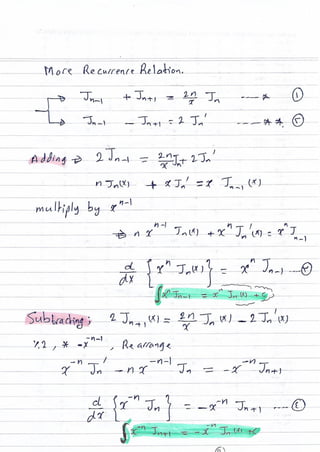 More Recurrence Relation.
J_{n-1} + J_{n+1} = \frac{2n}{x} J_n ---- * ①
J_{n-1} - J_{n+1} = 2 J_n' ---- ** ②
Adding ⇒ 2 J_{n-1} = \frac{2n}{x} J_n + 2 J_n'
n J_n(x) + x J_n' = x J_{n-1}(x)
multiply by x^{n-1}
⇒ n x^{n-1} J_n(x) + x^n J_n'(x) = x^n J_{n-1}
\frac{d}{dx} { x^n J_n(x) } = x^n J_{n-1} -- ③
∫ x^n J_{n-1} = x^n J_n(x) + c
Subtracting; 2 J_{n+1}(x) = \frac{2n}{x} J_n(x) - 2 J_n'(x)
% 2, * -x^{-n-1}, Rearrange
x^{-n} J_n' - n x^{-n-1} J_n = -x^{-n} J_{n+1}
\frac{d}{dx} { x^{-n} J_n } = -x^{-n} J_{n+1} --- ④
∫ x^{-n} J_{n+1} = -x^{-n} J_n(x) + c